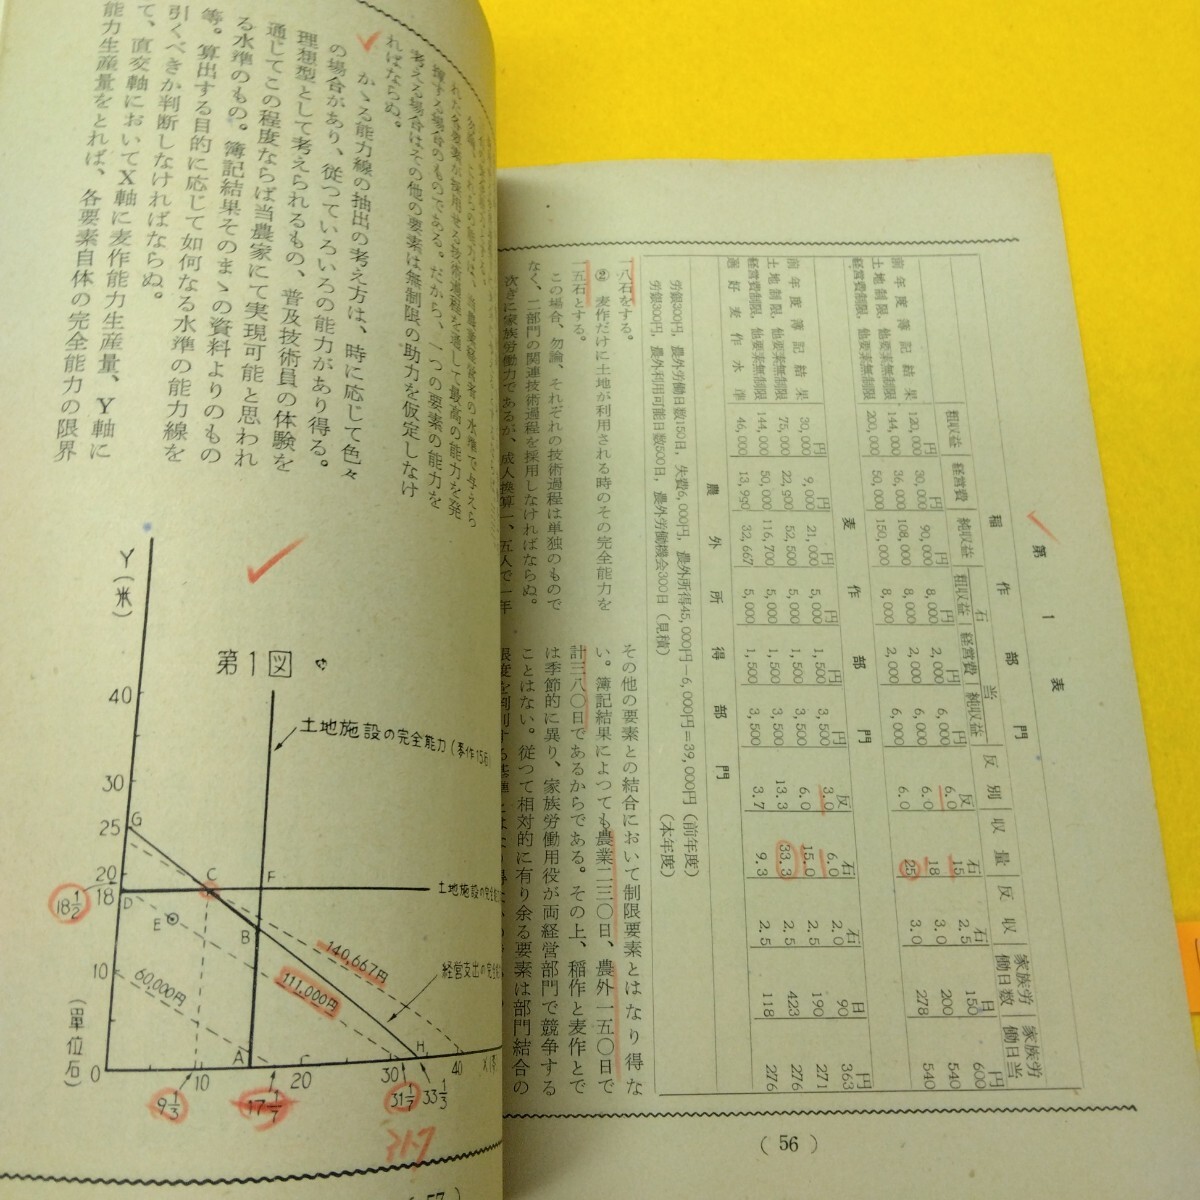 第 1 表
稲 作 部 門
石 当
粗収益 経営費 純収益 粗収益 経営費 純収益 反別 収量 反収 家族労働日数 家族労働日当
前年度簿記結果 120,000円 30,000円 90,000円 8,000円 2,000円 6,000円 6.0反 15石 2.5石 150日 600円
土地制限，他要素無制限 144,000 36,000 108,000 8,000 2,000 6,000 6.0 18 3.0 200 540
経営費制限，他要素無制限 200,000 50,000 150,000 8,000 2,000 6,000 25 3.0 278 540
麦 作 部 門
前年度簿記結果 30,000円 9,000円 21,000円 5,000円 1,500円 3,500円 3.0反 6.0石 2.0石 90日 363円
土地制限，他要素無制限 75,000 22,900 52,500 5,000 1,500 3,500 6.0 15.0 2.5 190 271
経営費制限，他要素無制限 144,000 50,000 116,700 5,000 1,500 3,500 13.3 33.3 2.5 423 276
選好麦作水準 46,000 13,990 32,667 5,000 1,500 3,500 3.7 9.3 2.5 118 276
農 外 所 得 部 門
労銀300円，農外労働日数150日，失費6,000円，農外所得45,000円−6,000円＝39,000円（前年度）
労銀300円，農外利用可能日数500日，農外労働機会300日（見積） （本年度）
一八石をする。
② 麦作だけに土地が利用される時のその完全能力を
一五石とする。
この場合、勿論、それぞれの技術過程は単独のもので
なく、二部門の関連技術過程を採用しなければならぬ。
次ぎに家族労働力であるが、成人換算一、五人で一年
その他の要素との結合において制限要素とはなり得な
い。簿記結果によつても農業二三〇日、農外一五〇日で
計三八〇日であるからである。その上、稲作と麦作とで
は季節的に異り、家族労働用役が両経営部門で競争する
ことはない。従つて相対的に有り余る要素は部門結合の
( 56 )
考える場合はその他の要素は無制限の助力を仮定しなけ
ればならぬ。
かゝる能力線の抽出の考え方は、時に応じて色々
の場合があり、従つていろいろの能力があり得る。
理想型として考えられるもの、普及技術員の体験を
通じてこの程度ならば当農家にて実現可能と思われ
る水準のもの。簿記結果そのまゝの資料よりのもの
等。算出する目的に応じて如何なる水準の能力線を
引くべきか判断しなければならぬ。
て、直交軸においてX軸に麦作能力生産量、Y軸に
能力生産量をとれば、各要素自体の完全能力の限界
第1図
Y(米)
40
30
25
20
18
18½
10
0
(単位石)
土地施設の完全能力(麦作15石)
G
C
F
D
E
B
A
H
140,667円
111,000円
60,000円
10
20
30
40
9⅓
17 1/7
31 1/7
33⅓